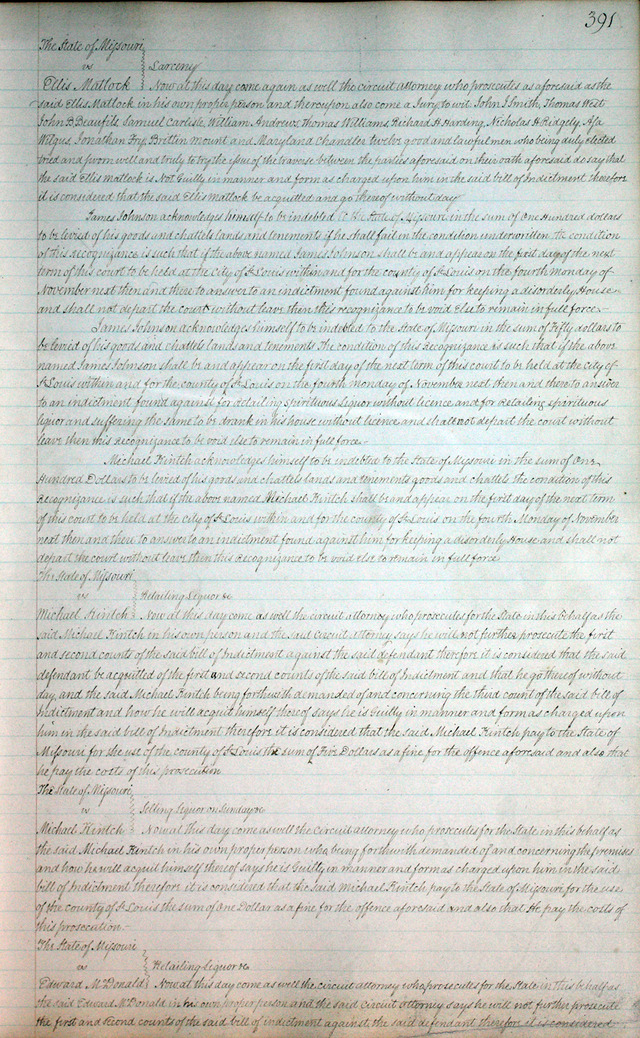 391
The State of Missouri
vs Larceny
Ellis Matlock Now at this day come again as well the circuit attorney who prosecutes as aforesaid as the
said Ellis Matlock in his own proper person and thereupon also come a Jury to wit John J Smith, Thomas West
John B Beaufils Samuel Carlisle, William Andrews Thomas Williams, Richard H Harding, Nicholas H Ridgely Asa
Wilgus, Jonathan Fry Brittin mount and Maryland Chandler twelve good and lawful men who being duly elected
tried and sworn well and truly to try the issue of the traverse between the parties aforesaid on their oath aforesaid do say that
the said Ellis Matlock is Not Guilty in manner and form as charged upon him in the said bill of Indictment therefore
it is considered that the said Ellis Matlock be acquitted and go thereof without day
James Johnson acknowledges himself to be indebted to the State of Missouri in the sum of One Hundred dollars
to be levied of his goods and chattels lands and tenements if he shall fail in the condition underwritten the condition
of this recognizance is such that if the above named James Johnson shall be and appear on the first day of the next
term of this court to be held at the city of St Louis within and for the county of St Louis on the fourth monday of
November next then and there to answer to an indictment found against him for keeping a disorderly House
and shall not depart the court without leave then this recognizance to be void Else to remain in full force.
James Johnson acknowledges himself to be indebted to the State of Missouri in the sum of Fifty dollars to
be levied of his goods and chattels lands and tenements The condition of this Recognizance is such that if the above
named James Johnson shall be and appear on the first day of the next term of this court to be held at the city of
St Louis within and for the county of St Louis on the fourth monday of November next then and there to answer
to an indictment found against for detailing spirituous Liquor without licence and for Retailing spirituous
liquor and suffering the same to be drank in his house without licence and shall not depart the court without
leave then this Recognizance to be void else to remain in full force.
Michael Kintch acknowledges himself to be indebted to the State of Missouri in the sum of One
Hundred Dollars to be levied of his goods and chattels lands and tenements goods and chattels the condition of this
Recognizance is such that if the above named Michael Kintch shall be and appear on the first day of the next term
of this court to be held at the city of St Louis within and for the county of St Louis on the fourth Monday of November
next then and there to answer to an indictment found against him for keeping a disorderly House and shall not
depart the court without leave then this Recognizance to be void else to remain in full force
The State of Missouri
vs Retailing Liquor &c
Michael Kintch Now at this day come as well the circuit attorney who prosecutes for the State in this behalf as the
said Michael Kintch in his own person and the said circuit attorney says he will not further prosecute the first
and second counts of the said bill of Indictment against the said defendant therefore it is considered that the said
defendant be acquitted of the first and second counts of the said bill of Indictment and that he go thereof without
day, and the said Michael Kintch being forthwith demanded of and concerning the third count of the said bill of
Indictment and how he will acquit himself thereof says he is Guilty in manner and form as charged upon
him in the said bill of Indictment therefore it is considered that the said Michael Kintch pay to the State of
Missouri for the use of the county of St Louis the sum of Five Dollars as a fine for the offence aforesaid and also that
he pay the costs of this prosecution
The State of Missouri
vs Selling Liquor on Sunday &c
Michael Kintch Now at this day come as well the Circuit attorney who prosecutes for the State in this behalf as
the said Michael Kintch in his own proper person who being forthwith demanded of and concerning the premises
and how he will acquit himself thereof says he is Guilty in manner and form as charged upon him in the said
bill of Indictment therefore it is considered that the said Michael Kintch pay to the State of Missouri for the use
of the county of St Louis the sum of One Dollar as a fine for the offence aforesaid and also that He pay the costs of
this prosecution.
The State of Missouri
vs Retailing Liquor &c
Edward McDonald Now at this day come as well the circuit attorney who prosecutes for the State in this behalf as
the said Edward McDonald in his own proper person and the said circuit attorney says he will not further prosecute
the first and second counts of the said bill of indictment against the said defendant therefore it is considered